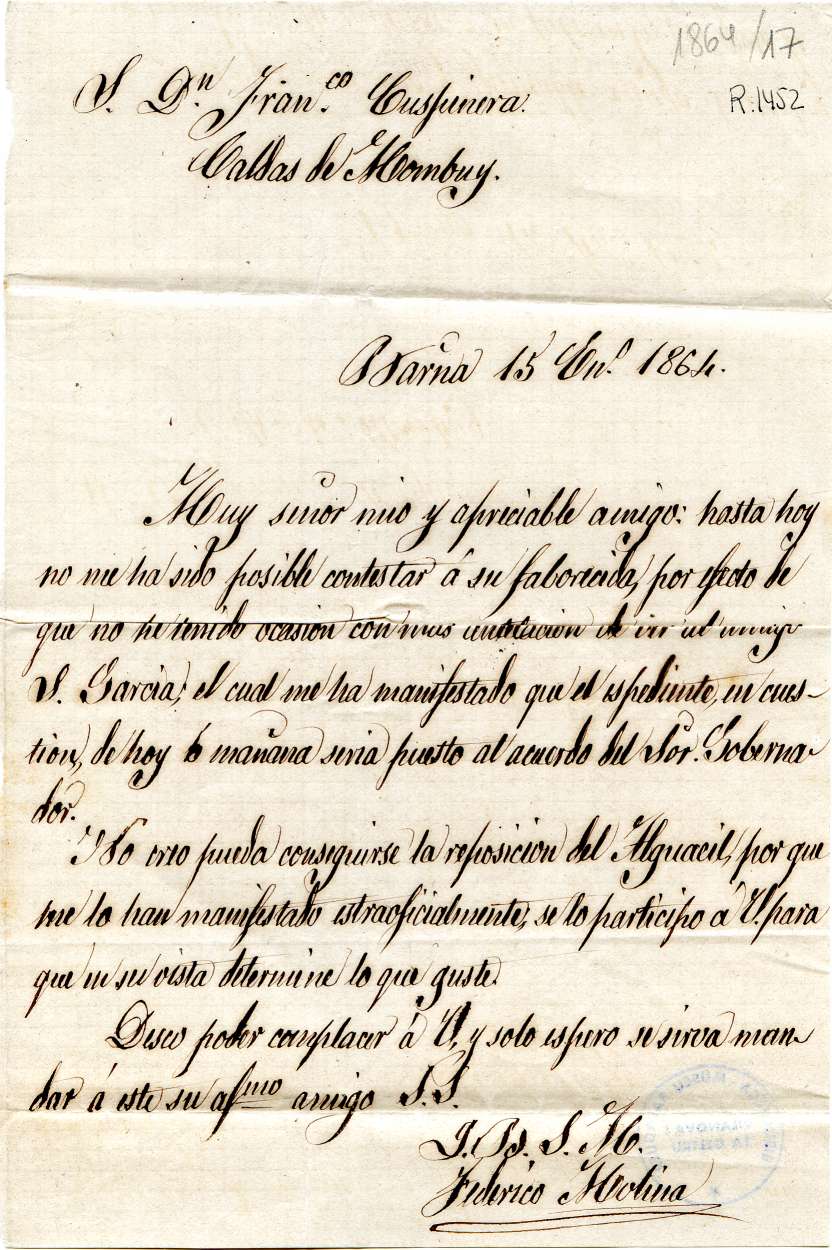 1864/17
R.1452
S. Dn. Franco. Cuspinera.
Caldas de Mombuy.
Barña 15 Eno. 1864.
Muy señor mio y apreciable amigo: hasta hoy
no me ha sido posible contestar á su faborecida, por efecto de
que no he tenido ocasion con mas antelacion de ver al amigo
S. Garcia; el cual me ha manifestado que el espediente, en cues-
tion, de hoy ó mañana seria puesto al acuerdo del Sor. Goberna-
dor.
No creo pueda conseguirse la reposicion del Alguacil, por que
me lo han manifestado estraoficialmente, se lo participo á V. para
que en su vista determine lo que guste.
Deseo poder complacer á V, y solo espero se sirva man-
dar á este su afmo amigo S.S.
Q. B. S. M.
Federico Molina